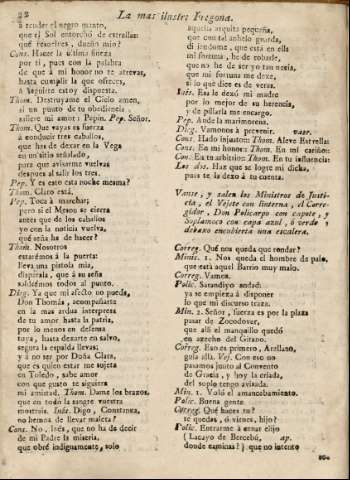 22
La mas ilustre Fregona.
à tender el negro manto,
que el Sol entorchó de estrellas:
qué resuelves, dueño mio?
Cons. Hacer la ultima fineza
por ti, pues con la palabra
de que à mi honor no te atrevas,
hasta cumplir la que ofreces,
à seguirte estoy dispuesta.
Thom. Destruyame el Cielo amen,
si un punto de tu obediencia
saliere mi amor: Pepin. Pep. Señor.
Thom. Que vayas es fuerza
à conducir tres caballos,
que has de dexar en la Vega
en un sitio señalado,
para que avisarme vuelvas
despues al salir los tres.
Pep. Y es esto esta noche mesma?
Thom. Claro está.
Pep. Toca à marchar;
pero si el Meson se cierra
antes que de los caballos
yo con la noticia vuelva,
qué seña ha de hacer?
Thom. Nosotros
estarémos à la puerta:
lleva una pistola mia,
dispárala, que à su seña
saldrémos todos al punto.
Dieg. Ya que mi afecto no pueda,
Don Thomás, acompañarte
en la mas ardua interpresa
de tu amor hasta la patria,
por lo menos en defensa
tuya, hasta dexarte en salvo,
segura la espalda llevas;
y à no ser por Doña Clara,
que es quien estar me sujeta
en Toledo, sabe amor
con que gusto te siguiera
mi amistad. Thom. Dame los brazos,
que en todo la sangre vuestra
mostrais. Inés. Digo, Constanza,
no hemos de llevar maleta?
Cons. No, Inés, que no ha de decir
de mi Padre la miseria,
que obré indignamente, solo
aquella arquita pequeña,
que con tal anhelo guarda,
di indome, que está en ella
mi fortuna, he de robarle,
que no he de ser yo tan necia,
que mi fortuna me dexe,
si lo que dice es de veras.
Inés. Esa le dexó mi madre
por lo mejor de su herencia,
y de pillarla me encargo.
Pep. Ande la marimorena.
Dieg. Vamonos à prevenir. vase.
Cons. Hado injusto: Thom. Aleve Estrella:
Cons. En mi honor: Thom. En mi cariño:
Cons. En tu arbitrio: Thom. En tu influencia:
Los dos. Haz que se logre mi dicha,
pues te la dexo à tu cuenta.
Vanse; y salen los Ministros de Justi-
cia, el Vejete con linterna, el Corre-
gidor, Don Policarpo con capote, y
Soplamoco con capa azul, ò verde, y
debaxo encubierta una escalera.
Correg. Qué nos queda que rondar?
Minis. 1. Nos queda el hombre de palo,
que está aquel Barrio muy malo.
Correg. Vamos.
Polic. Satandiyo andad:
ya se empieza à disponer
lo que mi discurso traza.
Min. 2. Señor, fuerza es por la plaza
pasar de Zocodover,
que allí el manquillo quedó
en azecho del Gitano.
Correg. Eso es primero, Arellano,
guia allá. Vej. Con eso no
pasamos junto al Convento
de Gracia, y hoy la criada,
del soplo tengo avisada.
Min. 1. Voló el amancebamiento.
Polic. Buena gente.
Correg. Qué haces tu?
te quedas, ò vienes, hijo?
Polic. Entrarme à rezar elijo
(Lacayo de Bercebú, ap.
donde caminas?) que no intento